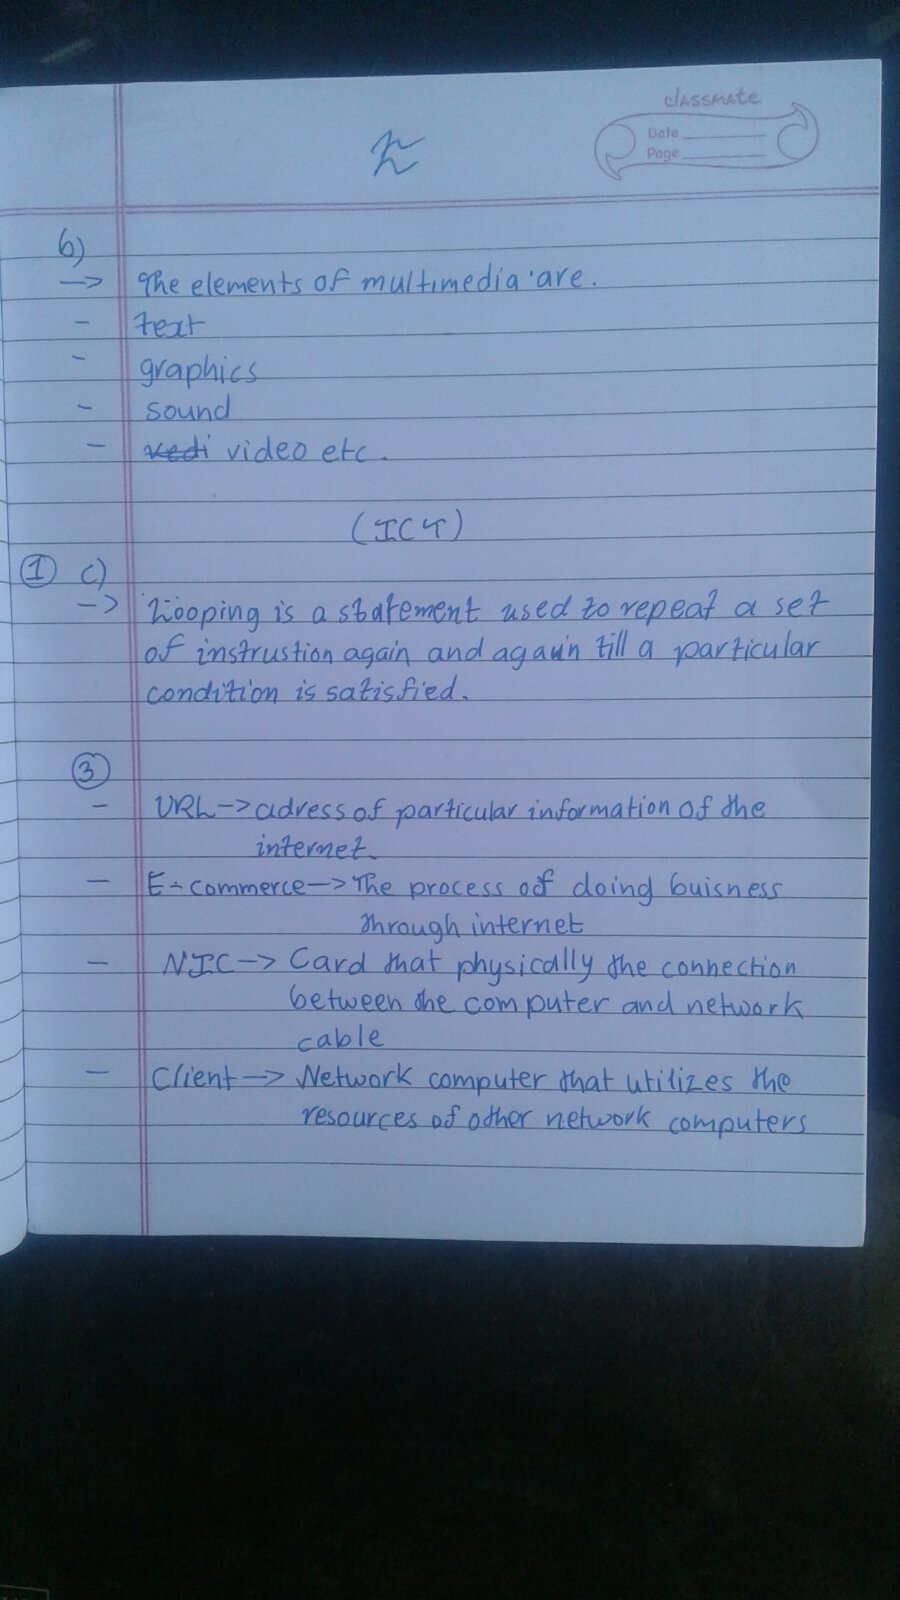 classmate
Date
Page
b)
-> The elements of multimedia are.
- text
- graphics
- sound
- vedi video etc.
(ICT)
1 c)
-> Looping is a statement used to repeat a set
of instrustion again and again till a particular
condition is satisfied.
3
- URL -> adress of particular information of the
internet.
- E-commerce -> The process of doing buisness
through internet
- NIC -> Card that physically the connection
between the computer and network
cable
- Client -> Network computer that utilizes the
resources of other network computers